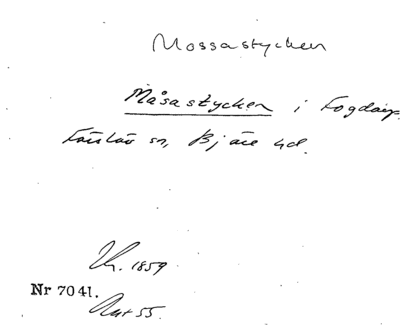 Mossastycken
Måsastycken i Fogdarp.
Förslöv sn, Bjäre hd.
Vh. 1859
Nr 7041.
Akt 55.